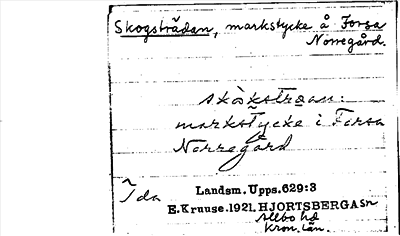 Skogsträdan, markstycke å Forsa
Norregård.
skòkstroan:
markstycke i Forsa
Norregård
Ida
Landsm. Upps. 629:3
E. Kruuse. 1921. HJORTSBERGA sn
Allbo hd
Kron. län.